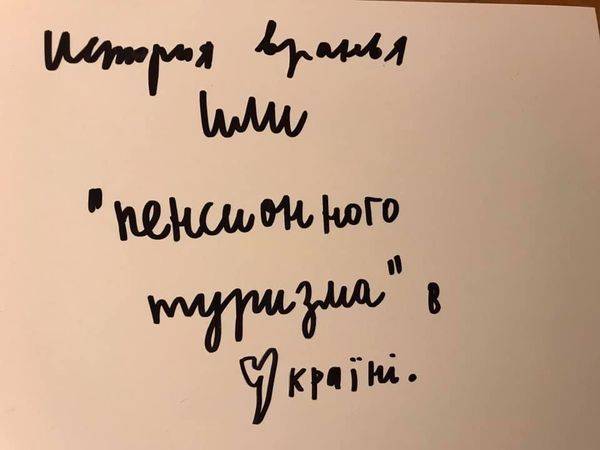 История вранья
или
"пенсионного
туризма" в
Україні.